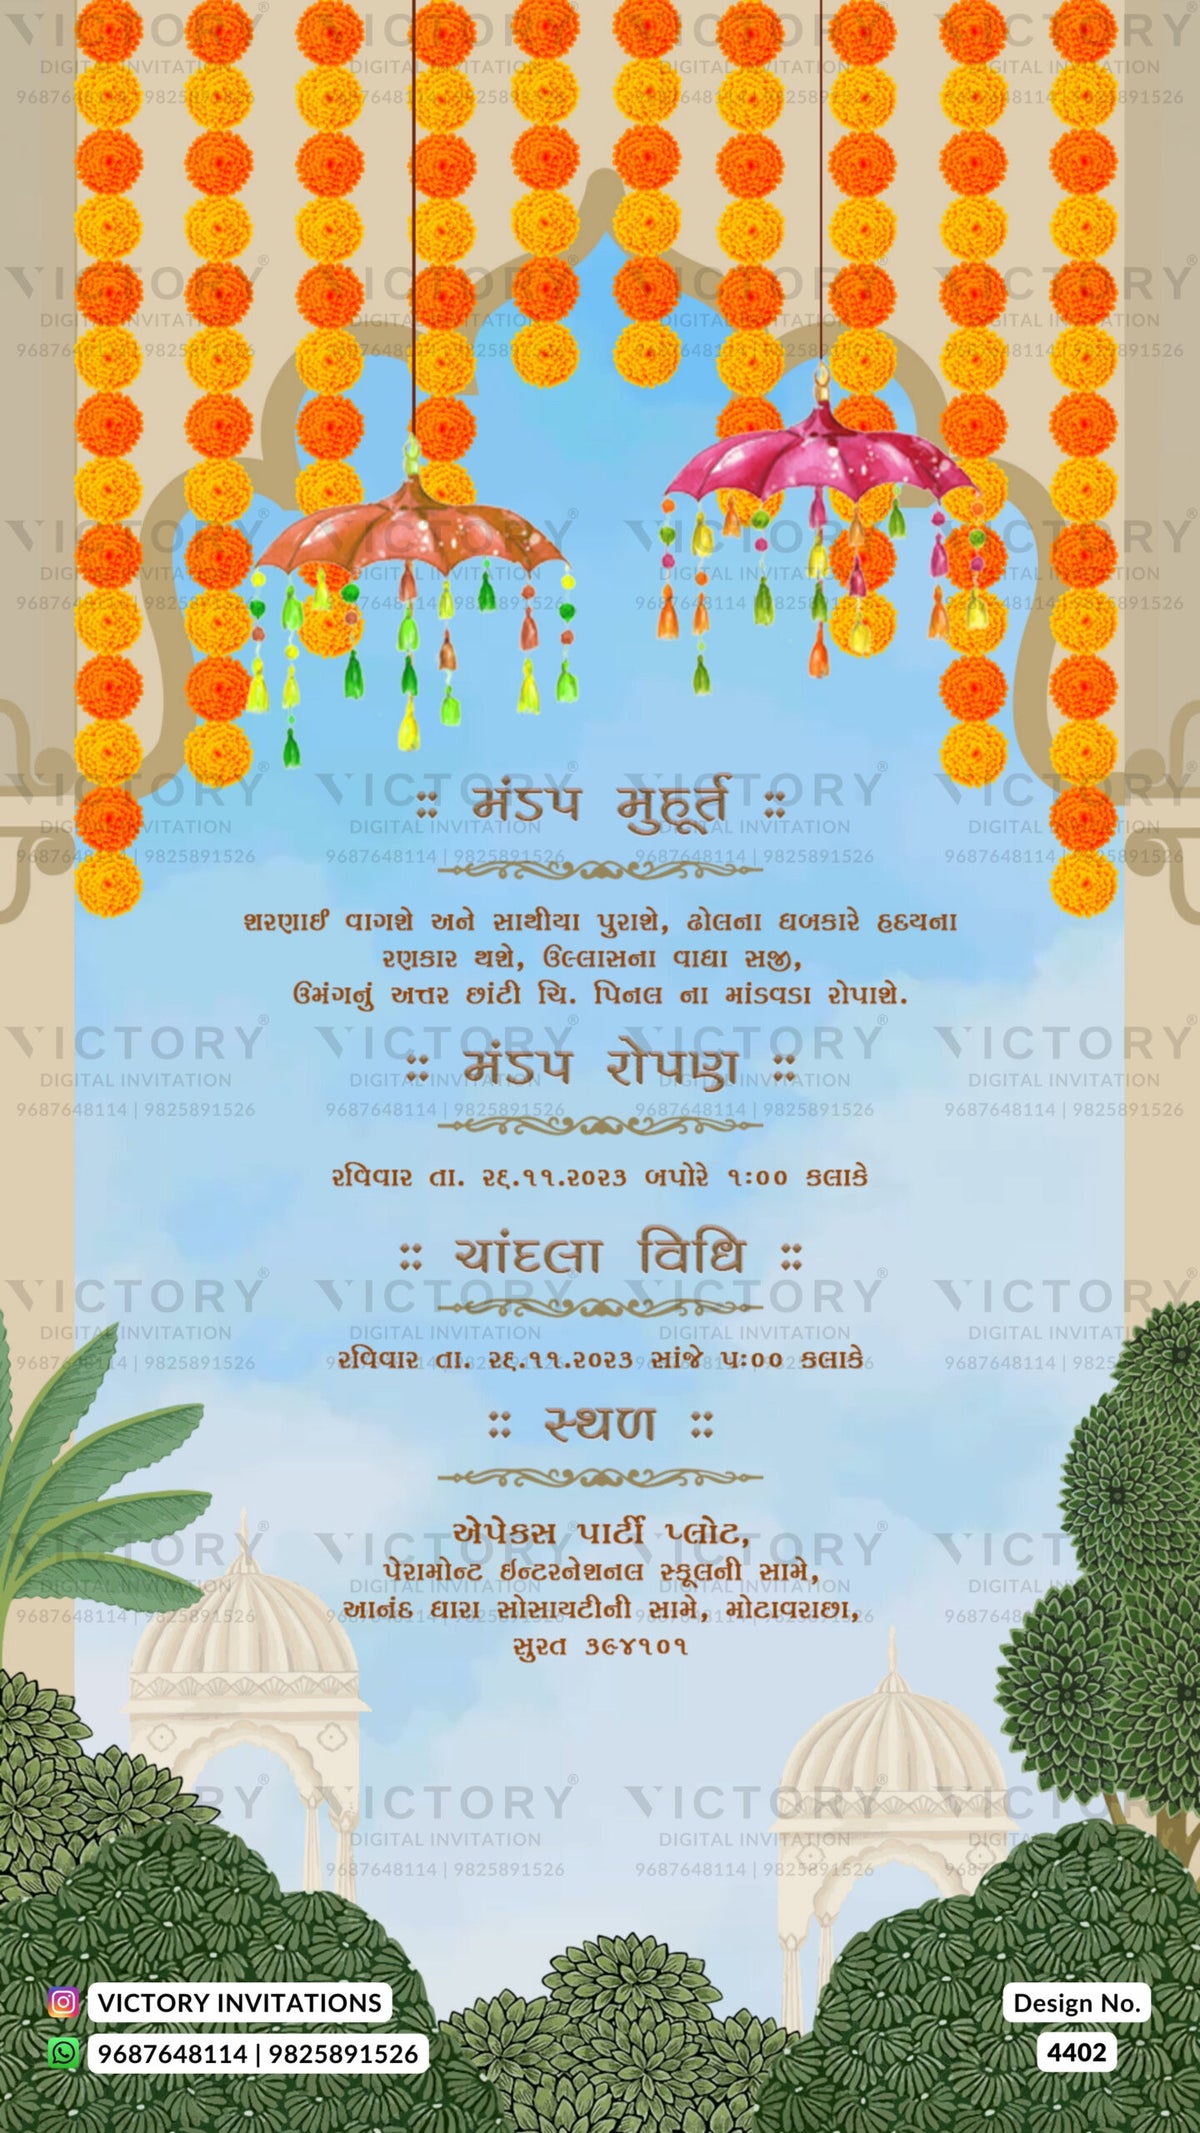 :: મંડપ મુહૂર્ત ::
શરણાઈ વાગશે અને સાથીયા પુરાશે, ઢોલના ધબકારે હૃદયના
રણકાર થશે, ઉલ્લાસના વાઘા સજી,
ઉમંગનું અત્તર છાંટી ચિ. પિનલ ના માંડવડા રોપાશે.
:: મંડપ રોપણ ::
રવિવાર તા. ૨૬.૧૧.૨૦૨૩ બપોરે ૧:૦૦ કલાકે
:: ચાંદલા વિધિ ::
રવિવાર તા. ૨૬.૧૧.૨૦૨૩ સાંજે ૫:૦૦ કલાકે
:: સ્થળ ::
એપેકસ પાર્ટી પ્લોટ,
પેરામોન્ટ ઇન્ટરનેશનલ સ્કૂલની સામે,
આનંદ ધારા સોસાયટીની સામે, મોટાવરાછા,
સુરત ૩૯૪૧૦૧
VICTORY INVITATIONS
9687648114 | 9825891526
Design No.
4402
VICTORY®
DIGITAL INVITATION
9687648114 | 9825891526